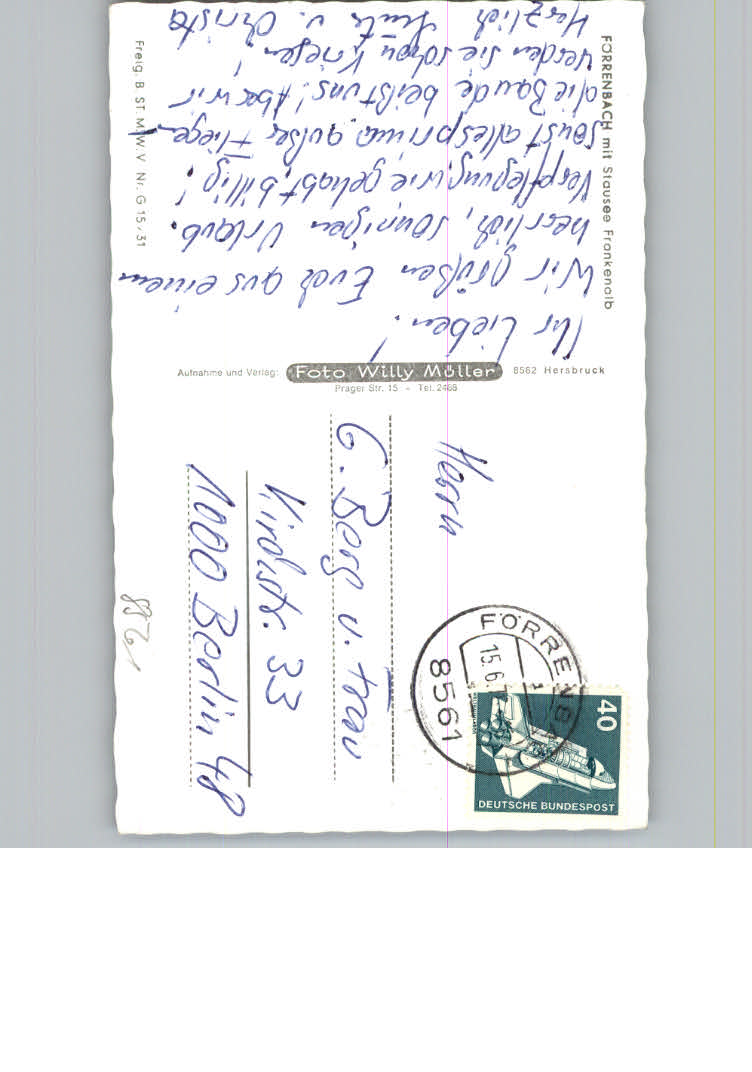 FÖRRENBACH mit Stausee Frankenalb
Ihr Lieben!
Wir grüßen Euch aus einem
herrlich, sonnigen Urlaub.
Verpflegung wie gehabt, billig!
Sonst alles prima außer Fliegen
die Baude beißt uns! Aber wir
werden sie schon kriegen!
Herzlich
Freig. B. ST. M. W. V. Nr. G 15/31
Aufnahme und Verlag: Foto Willy Müller 8562 Hersbruck
Prager Str. 15 - Tel. 2468
Herrn
G. Berg u. Frau
Kirchstr. 33
1000 Berlin 48
8561
FÖRRENBA
15.6.7
8561
40
DEUTSCHE BUNDESPOST